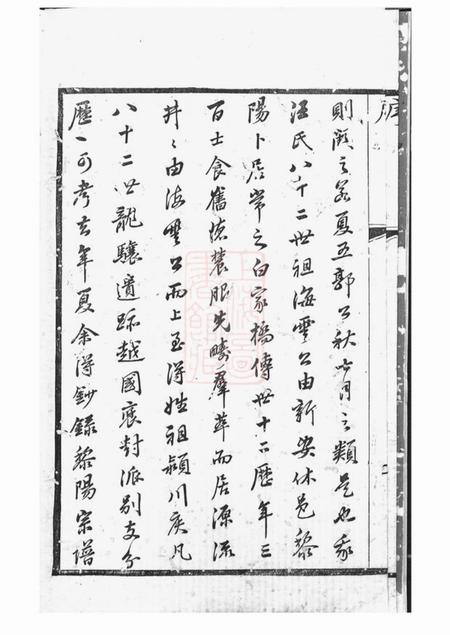 則闕之若夏五郭公秋七月之類是也我
汪氏八十二世祖海雲公由新安休邑黎
陽卜居常之白家橋傳世十二歷年三
百士食舊德農服先疇群萃而居源流
井〻由海雲公而上至得姓祖潁川矦凡
八十二世龍驤遺跡越國褒封派別支分
歷一可考去年夏余得鈔錄黎陽宗譜